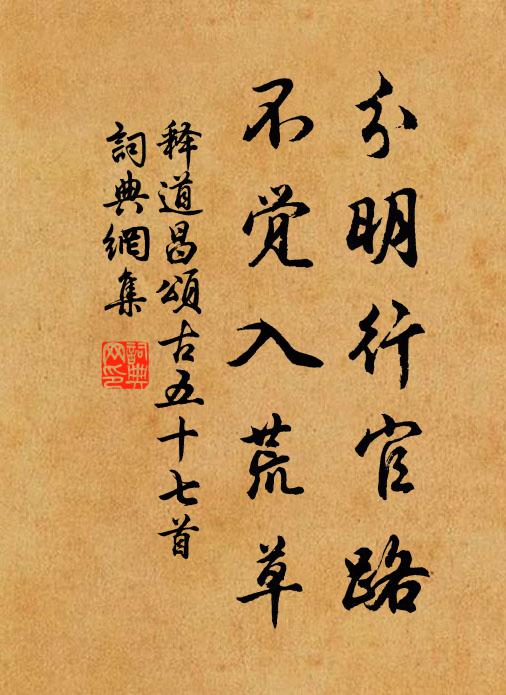 分明行官路
不觉入荒草
释道昌頌古五十七首
詞典網集
詞典網印